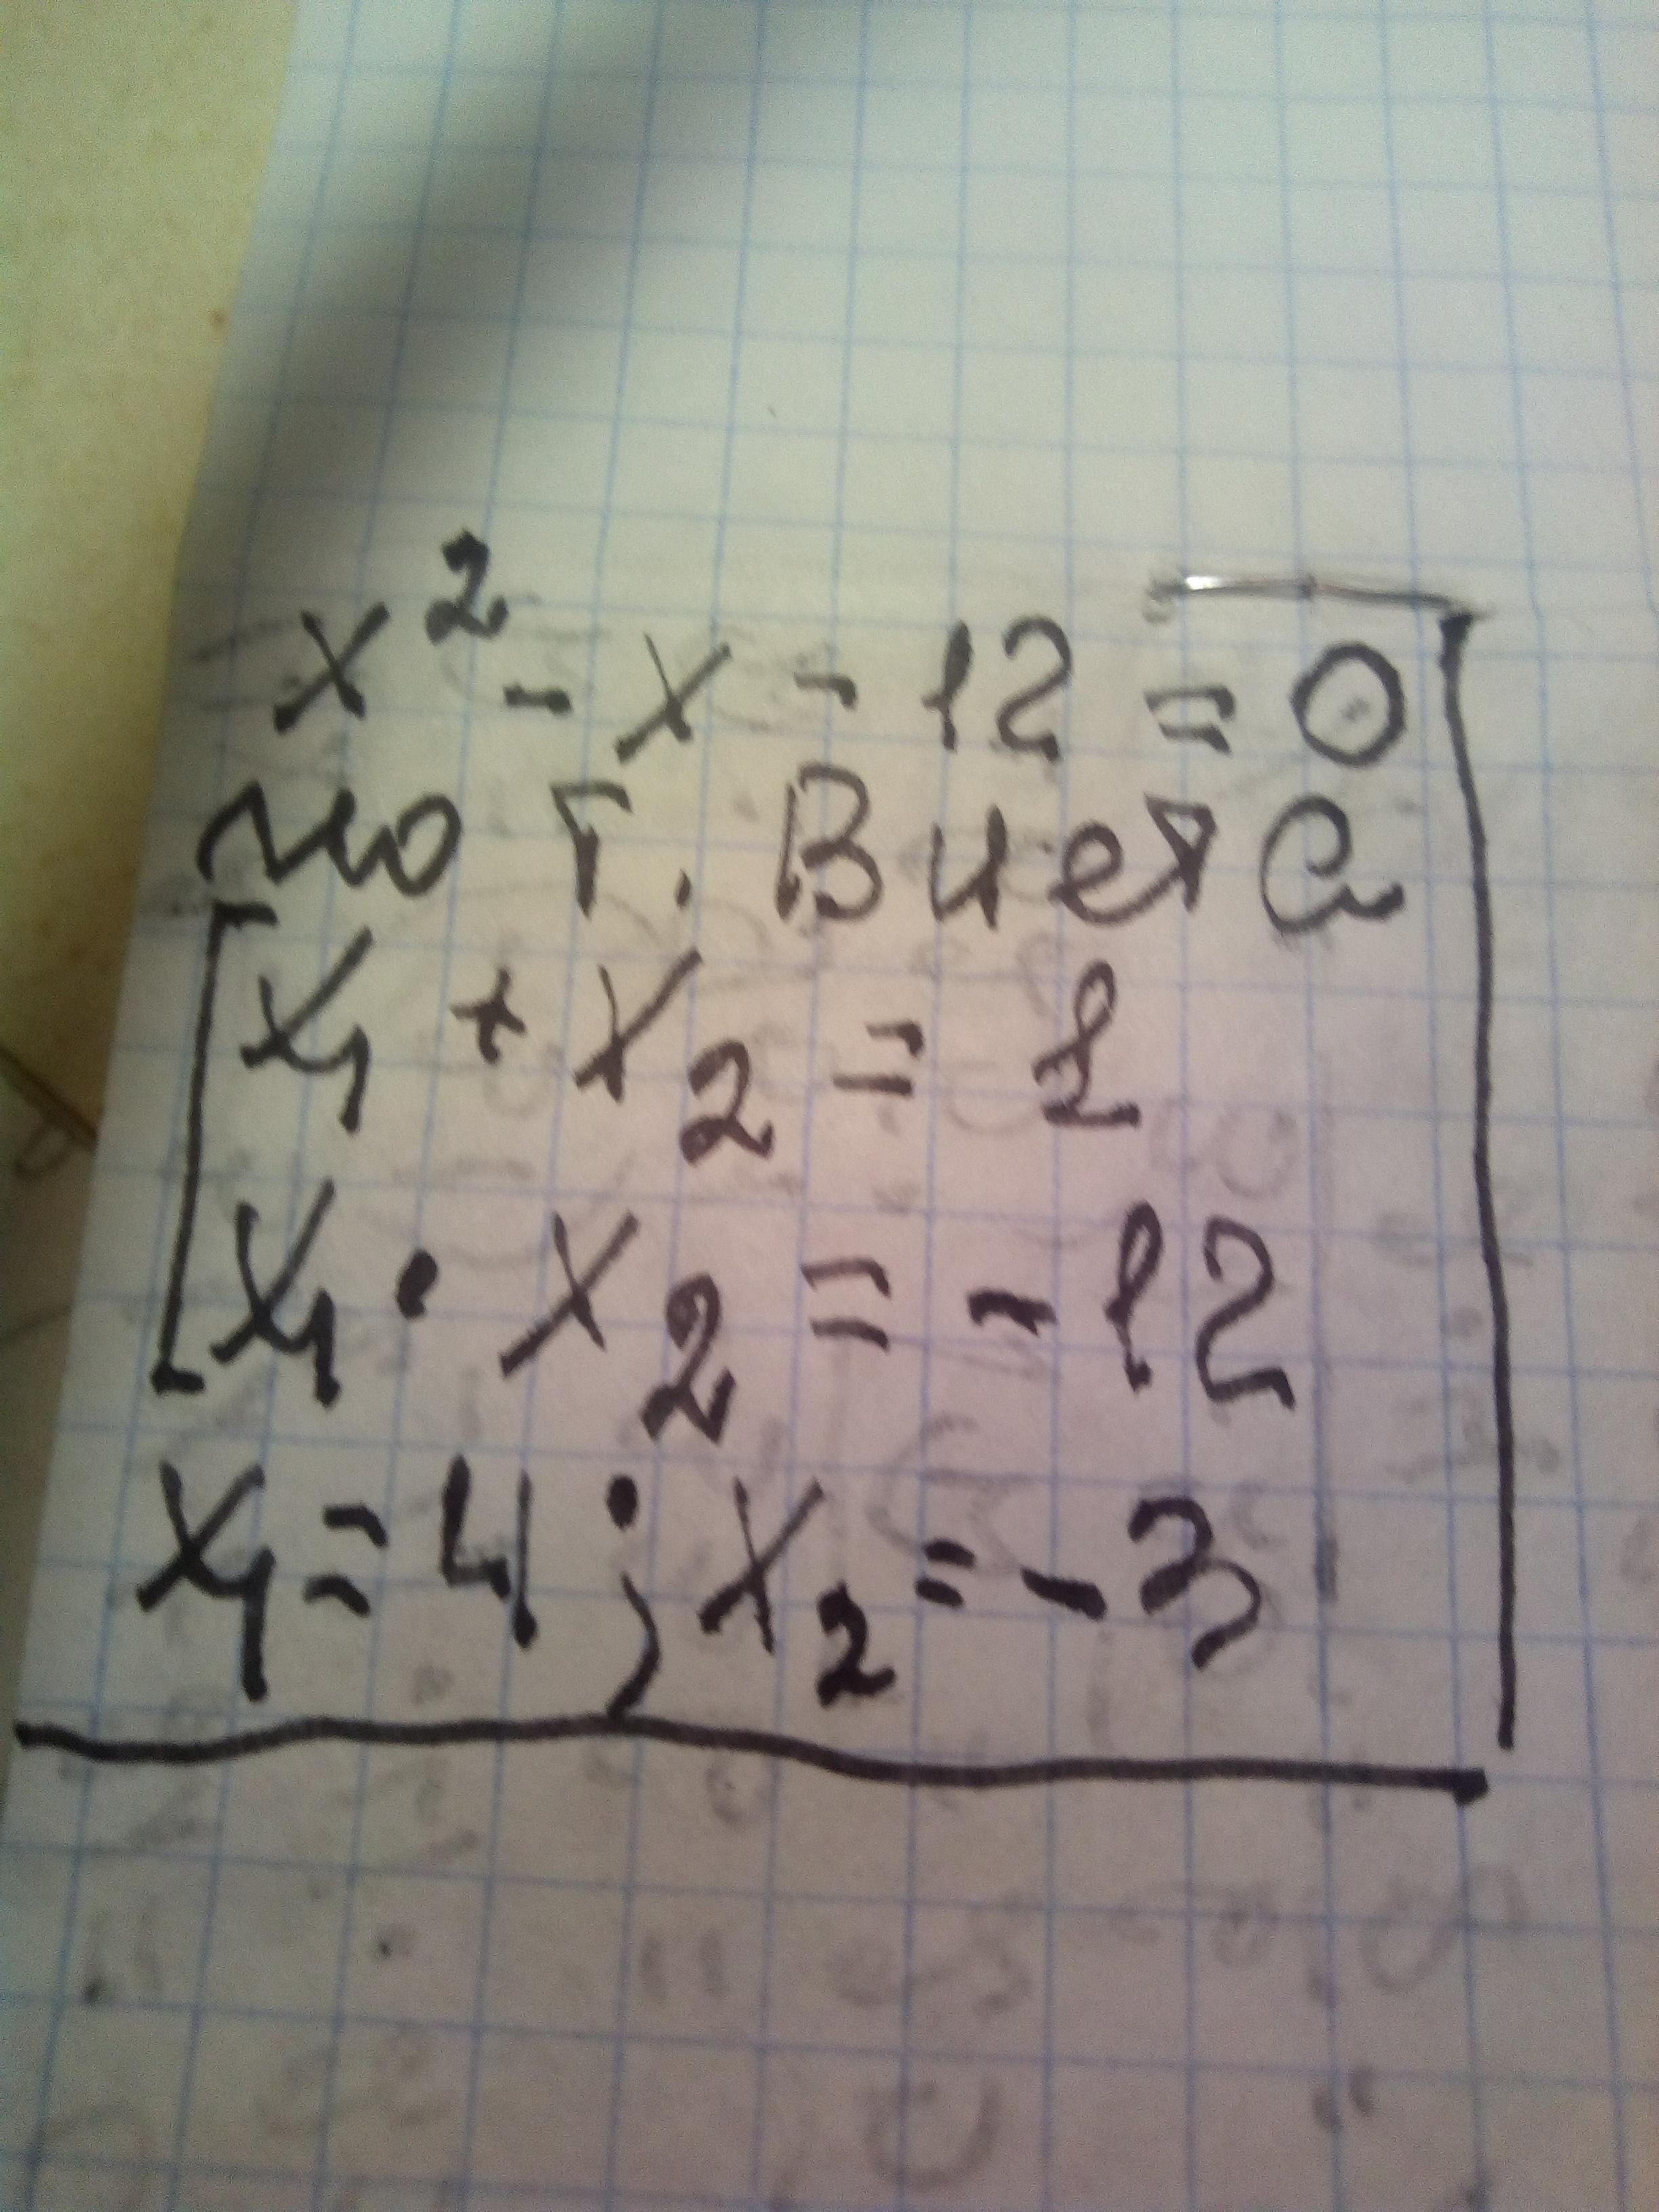 x² - x - 12 = 0
по т. Виета
x₁ + x₂ = 1
x₁ · x₂ = -12
x₁ = 4 ; x₂ = -3